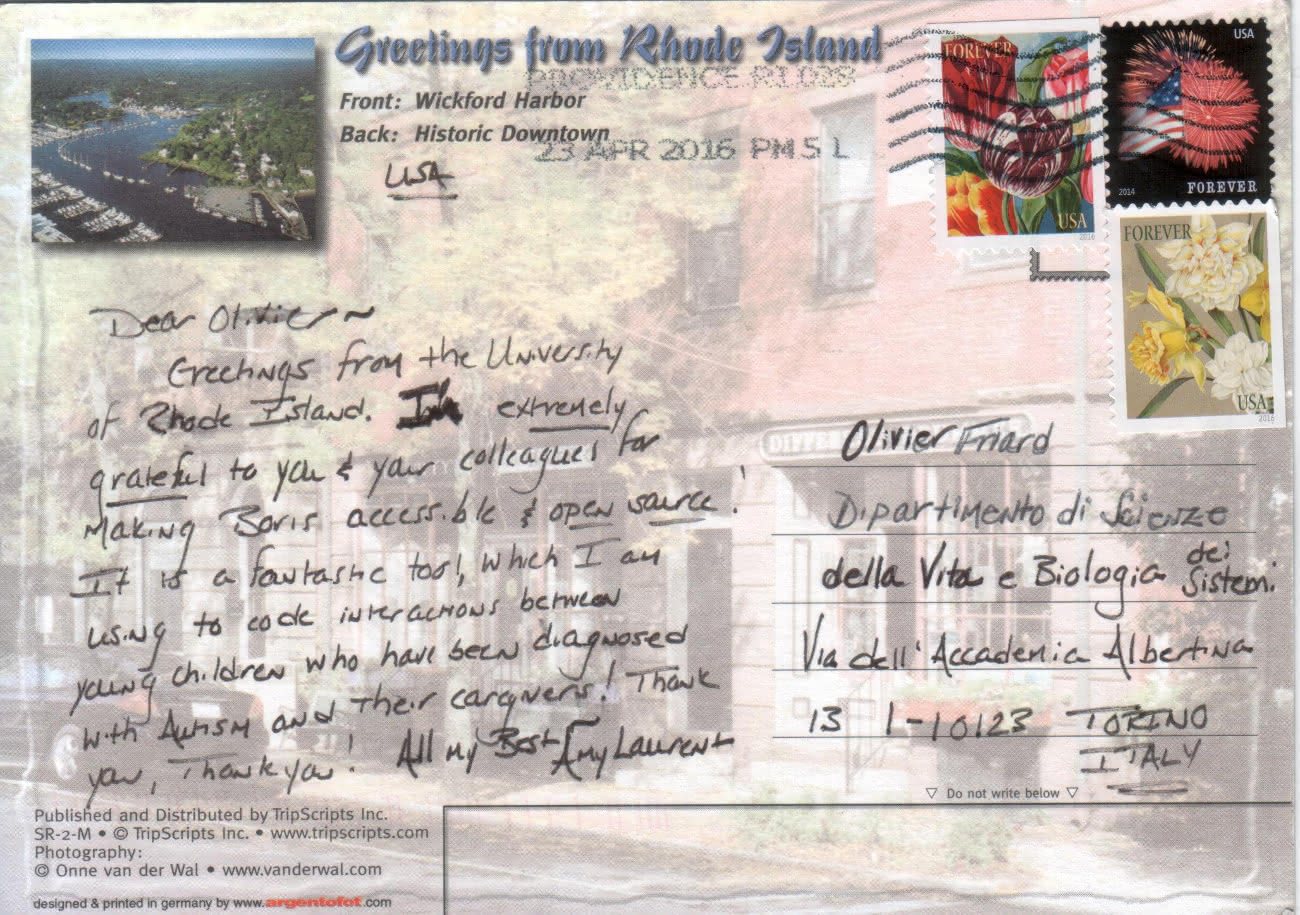 Greetings from Rhode Island
PROVIDENCE RI 028
Front: Wickford Harbor
Back: Historic Downtown
23 APR 2016 PM 5 L
USA
FOREVER
USA
2016
USA
2014
FOREVER
FOREVER
USA
2016
Dear Olivier ~
Greetings from the University
of Rhode Island. I'm extremely
grateful to you & your colleagues for
making Boris accessible & open source!
It is a fantastic tool, which I am
using to code interactions between
young children who have been diagnosed
with Autism and their cargivers! Thank
you, Thank you! All my Best Amy Laurent
Olivier Friard
Dipartimento di Scienze
della Vita e Biologia dei
Sistemi
Via dell'Accademia Albertina
13 I-10123 TORINO
ITALY
▽ Do not write below ▽
Published and Distributed by TripScripts Inc.
SR-2-M • © TripScripts Inc. • www.tripscripts.com
Photography:
© Onne van der Wal • www.vanderwal.com
designed & printed in germany by www.argentofot.com